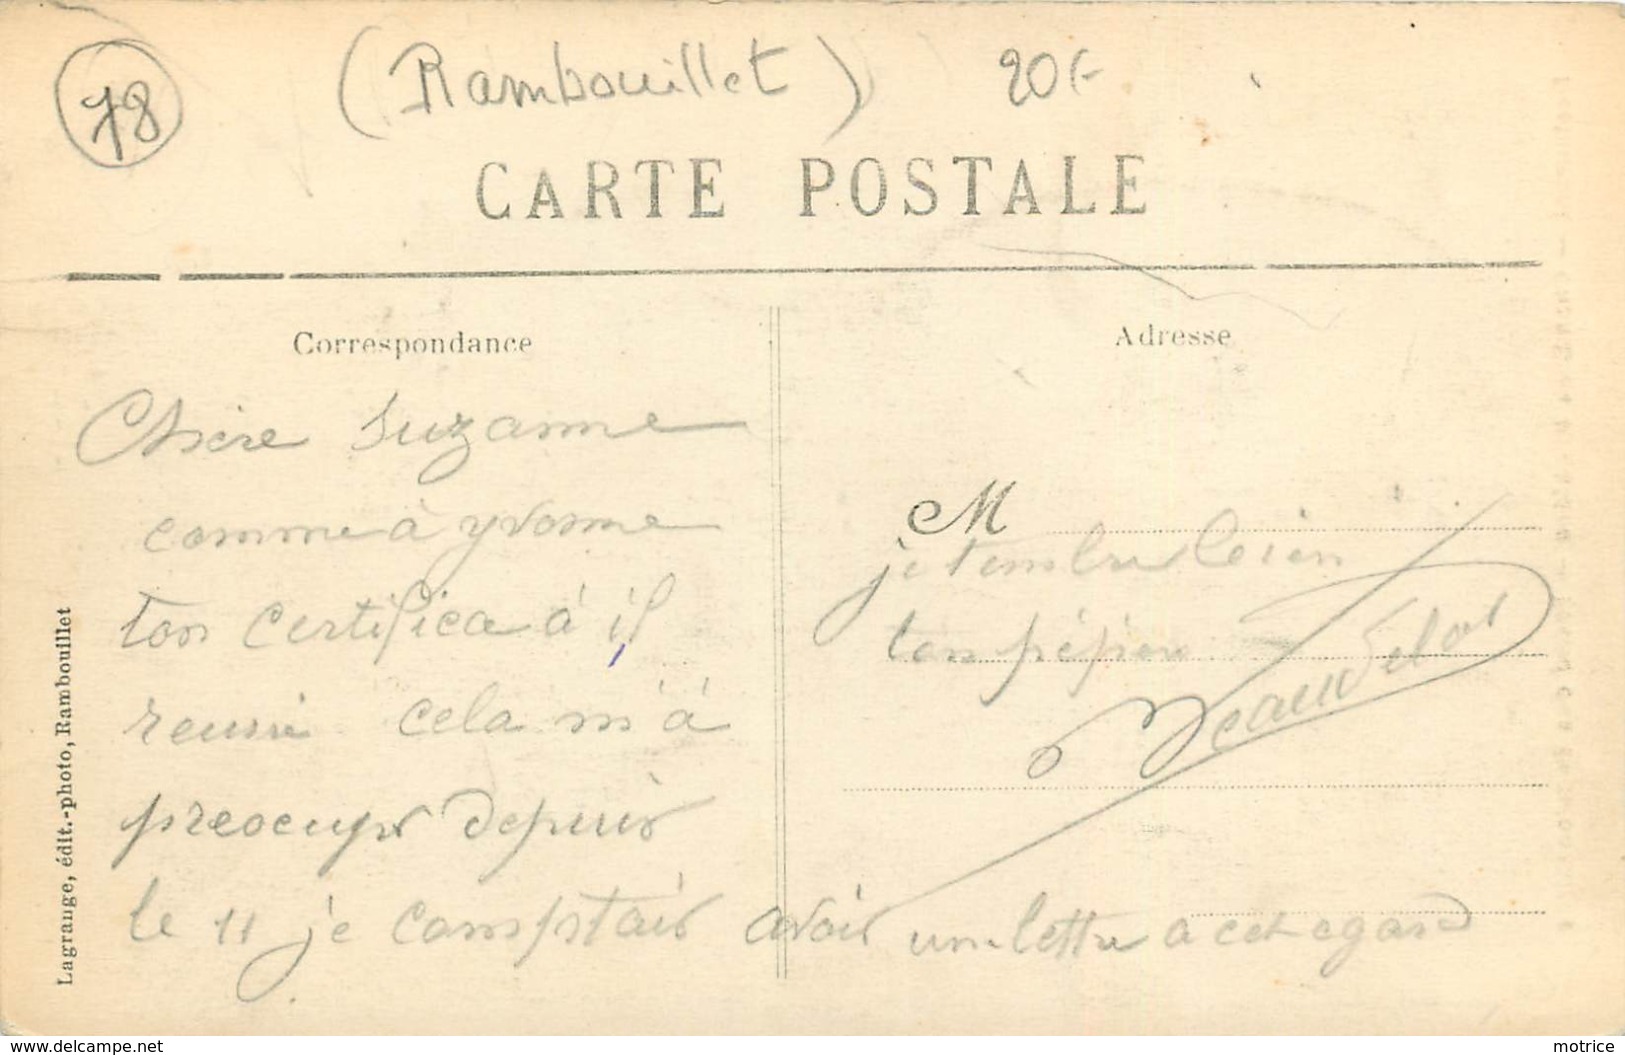 78
(Rambouillet)
20F
CARTE POSTALE
Correspondance
Adresse
Chère Suzanne
comme à yvonne
ton certifica à il
reussi cela m'à
preocupr depuis
le 11 je comptais avoir un lettre a cet egard
M
je tembrse bien
ton pépère
Beaudelot
Lagrange, édit.-photo, Rambouillet
www.delcampe.net
motrice